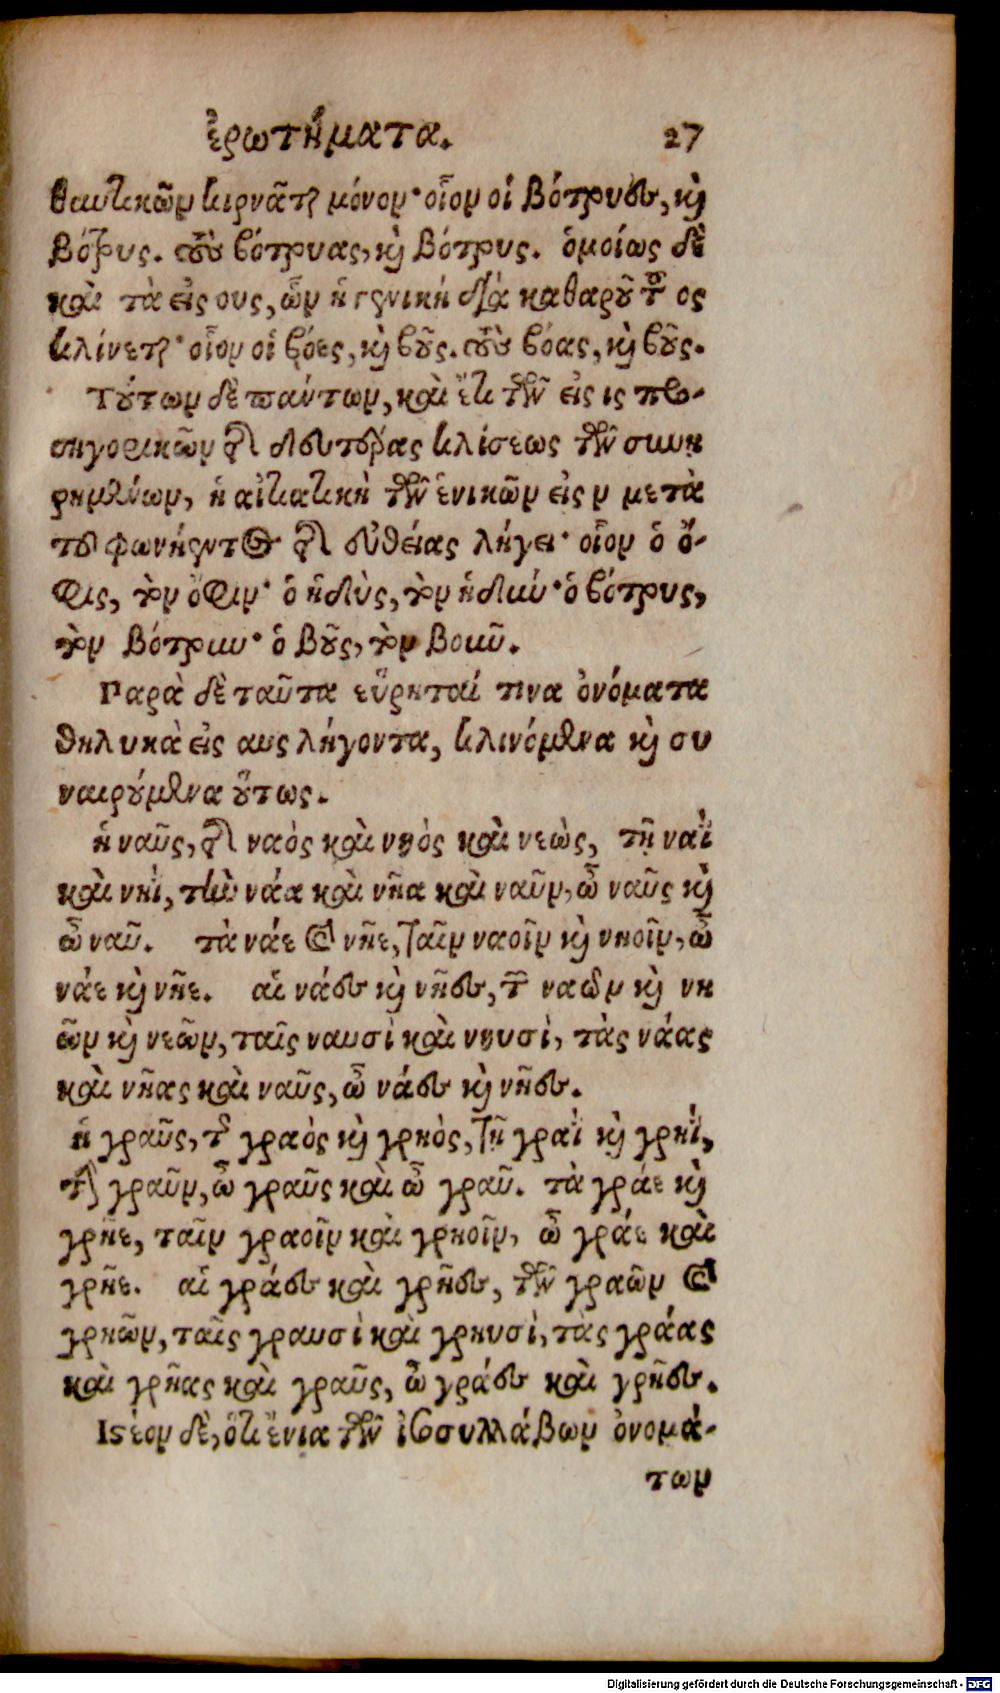 ἐρωτήματα. 27
θαιτικῶν κιρνᾶται μόνον· οἷον οἱ βότρυες, καὶ
βότρυς. τοὺς βότρυας, καὶ βότρυς. ὁμοίως δὲ
καὶ τὰ εἰς ους, ὧν ἡ γενικὴ διὰ καθαροῦ τοῦ ος
κλίνεται· οἷον οἱ βόες, καὶ βοῦς. τοὺς βόας, καὶ βοῦς.
Τούτων δὲ πάντων, καὶ ἔτι τῶν εἰς ις προ-
σηγορικῶν τῆς δευτέρας κλίσεως τῶν συνῃ
ρημένων, ἡ αἰτιατικὴ τῶν ἑνικῶν εἰς ν μετὰ
τοῦ φωνήεντος τῆς εὐθείας λήγει· οἷον ὁ ὄ-
φις, τὸν ὄφιν· ὁ ἡδὺς, τὸν ἡδύν· ὁ βότρυς,
τὸν βότρυν· ὁ βοῦς, τὸν βοῦν.
Παρὰ δὲ ταῦτα εὕρηταί τινα ὀνόματα
θηλυκὰ εἰς αυς λήγοντα, κλινόμενα καὶ συ
ναιρούμενα οὕτως.
ἡ ναῦς, τῆς ναὸς καὶ νηὸς καὶ νεὼς, τῇ ναῒ
καὶ νηῒ, τὴν νάα καὶ νῆα καὶ ναῦν, ὦ ναῦς καὶ
ὦ ναῦ. τὰ νάε καὶ νῆε, ταῖν ναοῖν καὶ νηοῖν, ὦ
νάε καὶ νῆε. αἱ νάες καὶ νῆες, τῶν ναῶν καὶ νη
ῶν καὶ νεῶν, ταῖς ναυσὶ καὶ νηυσὶ, τὰς νάας
καὶ νῆας καὶ ναῦς, ὦ νάες καὶ νῆες.
ἡ γραῦς, τῆς γραὸς καὶ γρηὸς, τῇ γραῒ καὶ γρηῒ,
τὴν γραῦν, ὦ γραῦς καὶ ὦ γραῦ. τὰ γράε καὶ
γρῆε, ταῖν γραοῖν καὶ γρηοῖν, ὦ γράε καὶ
γρῆε. αἱ γράες καὶ γρῆες, τῶν γραῶν καὶ
γρηῶν, ταῖς γραυσὶ καὶ γρηυσὶ, τὰς γράας
καὶ γρῆας καὶ γραῦς, ὦ γράες καὶ γρῆες.
Ἰστέον δὲ, ὅτι ἔνια τῶν ἰσοσυλλάβων ὀνομά-
των
Digitalisierung gefördert durch die Deutsche Forschungsgemeinschaft - DFG